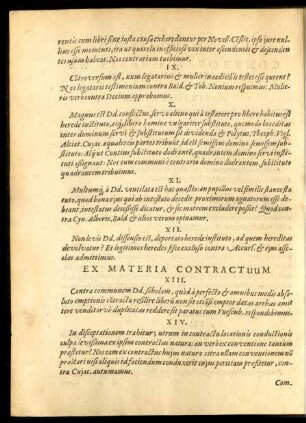 rentis cum libri sine justa causa exheredentur per Novell. Costit. ipso jure nul-
lius esse momenti, ita ut querela in officiosi vix inter ascendentes & descenden
tes usum habeat. Nos contrarium tuebimur.
IX.
Controversum est, num legatarius & mulier in codicillis testes esse queant?
Nos legatarii testimonium contra Bald. & Tob. Nonium respuimus: Mulie-
ris vero contra Decium approbamus.
X.
Magnus est Dd. conflictus, servo alieno quê à testatore pro libero habitus est
herede instituto, eiq; libero homine vulgariter substituto, quomodo hereditas
inter dominum servi & substitutum sit dividenda
Alciat. Cujac. equales iis partes tribuunt, id est semissem pro domino semissem substi-
tuto: Atqui Connan substituto quadrantê, quadrantem domino servi insti-
tuto assignant: Nos cum communi è contrario domino dodrantem, substituto
quadrantem tribuimus.
XI.
Multumq; à Dd. ventilata est hac quæstio: an pupillus vel similis stante sta-
tuto, quod bona ejus qui ab intestato decessit proximorum agnatorum esse de-
beant, intestatus decessisse dicatur, & sic matrem excludere possit? Quod con-
tra Cyn. Alberic. Bald & alios verum opinamur.
XII.
Non levis Dd. dissensio est, deportato herede instituto, ad quem hereditas
devolvatur? Et legitimos heredes fisco excluso contra Accurs. & ejus asse-
clas admittimus.
EX MATERIA CONTRACTuuM
XIII.
Contra communem Dd. scholam, quòd à perfecta & omnibus modis abso-
luto emptionis contractu resilire liberû non sit etiâsi emptor datas arrhas amit-
tere venditor vè duplicatas reddere sit paratus cum Vvesenb. respondebimus.
XIV.
In disceptationem trahitur, utrum in contractu locationis conductionis
culpa levissima ex ipsius contractus natura: an verò ex conventione tantum
præstetur? Nos eam ex contractus hujus natura citra ullam conventionem nô
præstari nisi aliquis ad faciendum conduxerit cujus peritiam profitetur, con-
tra Cujac. autumamus.
Com.